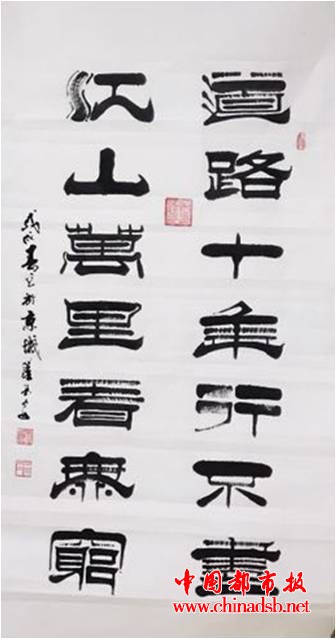 道路十年行不盡
江山萬里看無窮
戊戌春
中国都市报
www.chinadsb.net